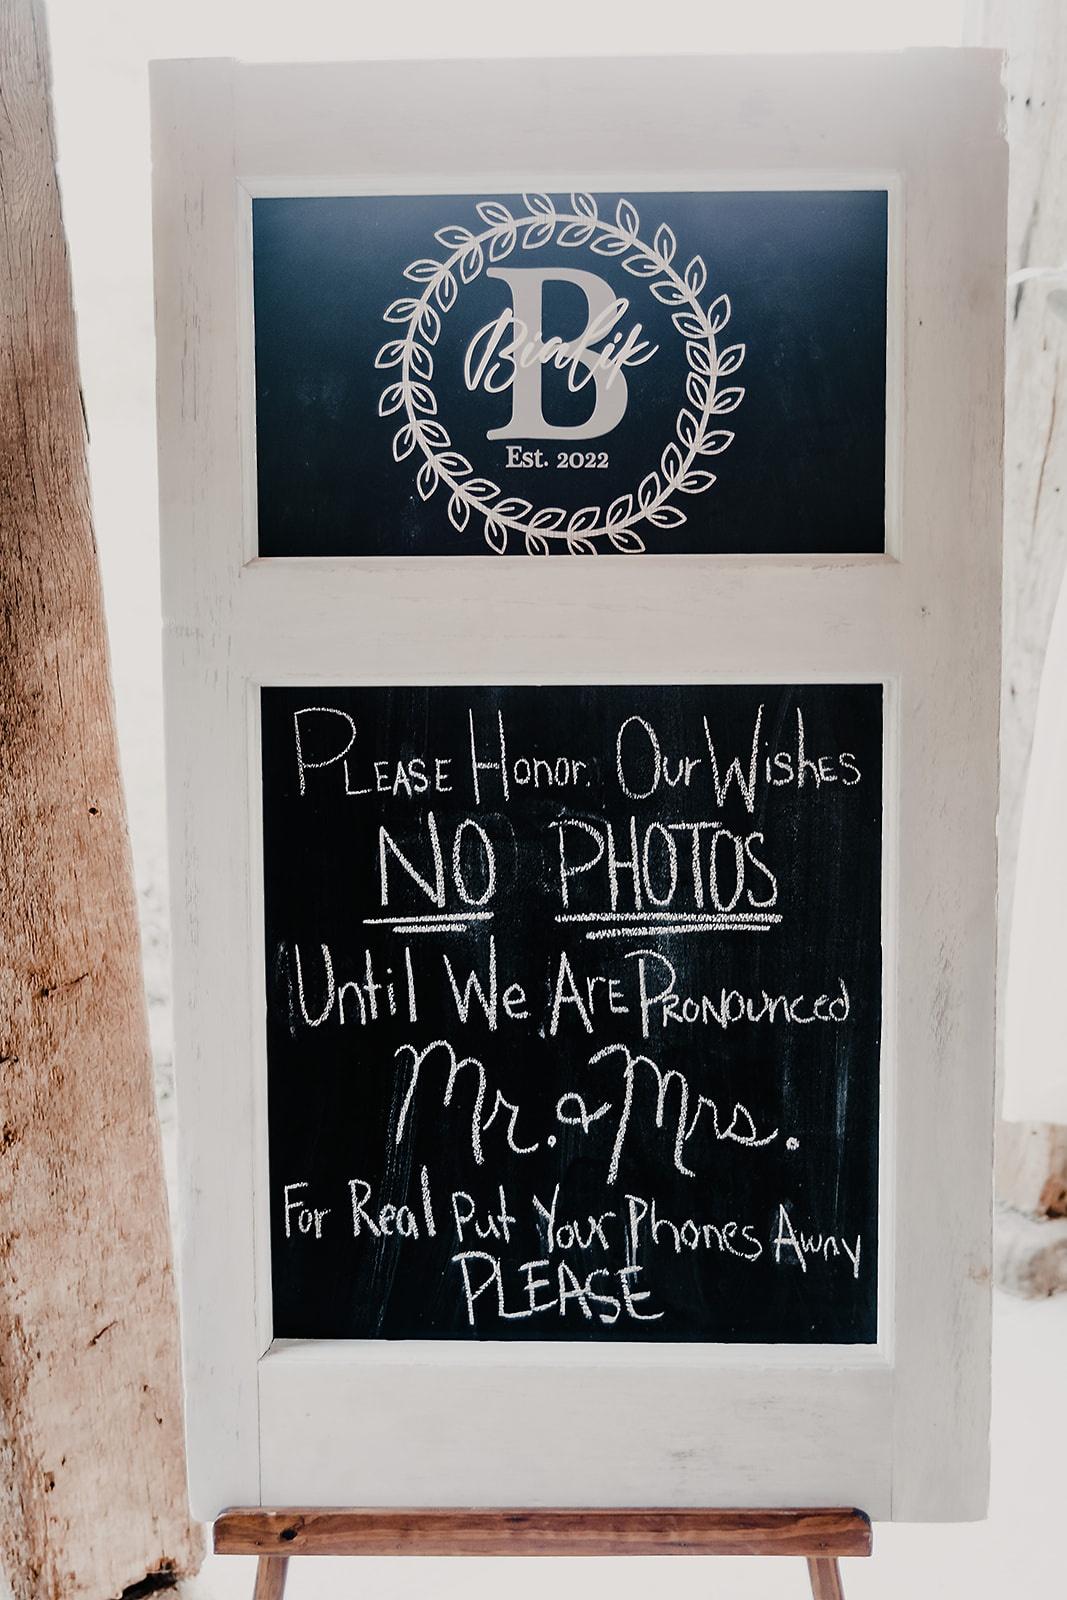 B
Bialik
Est. 2022
PLEASE Honor Our Wishes
NO PHOTOS
Until We ARE PRONOUNCED
Mr. & Mrs.
For Real Put Your Phones Away
PLEASE